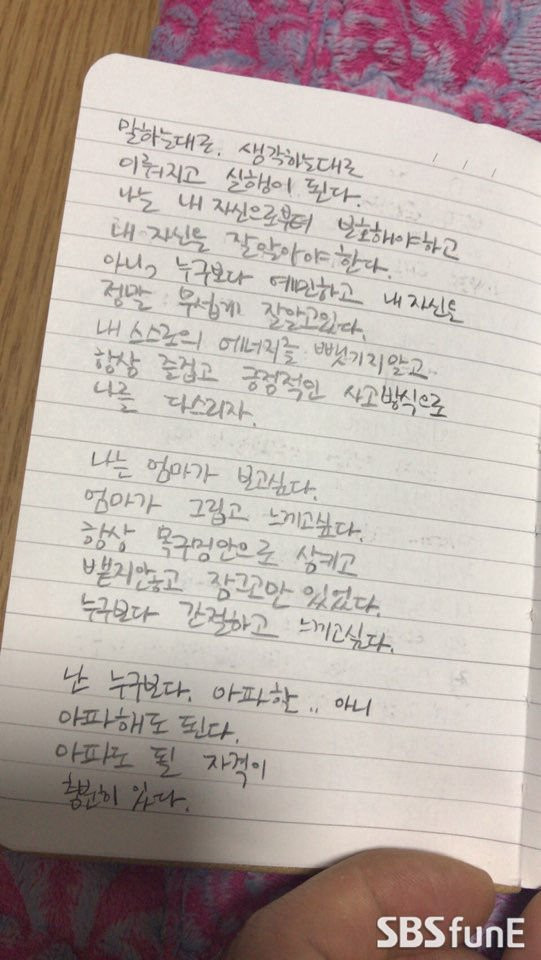 말하는대로. 생각하는대로
이뤄지고 실행이 된다.
나는 내 자신으로부터 보호해야하고
내 자신을 잘알아야한다.
아니, 누구보다 예민하고 내 자신을
정말 무섭게 잘알고있다.
내 스스로의 에너지를 뺏기지말고
항상 즐겁고 긍정적인 사고방식으로
나를 다스리자.
나는 엄마가 보고싶다.
엄마가 그립고 느끼고싶다.
항상 목구멍안으로 삼키고
뱉지안ho고 잠그고만 있었다.
누구보다 간절하고 느끼고싶다.
난 누구보다. 아파할.. 아니
아파해도 된다.
아파도 될 자격이
충분히 있다.
SBS funE